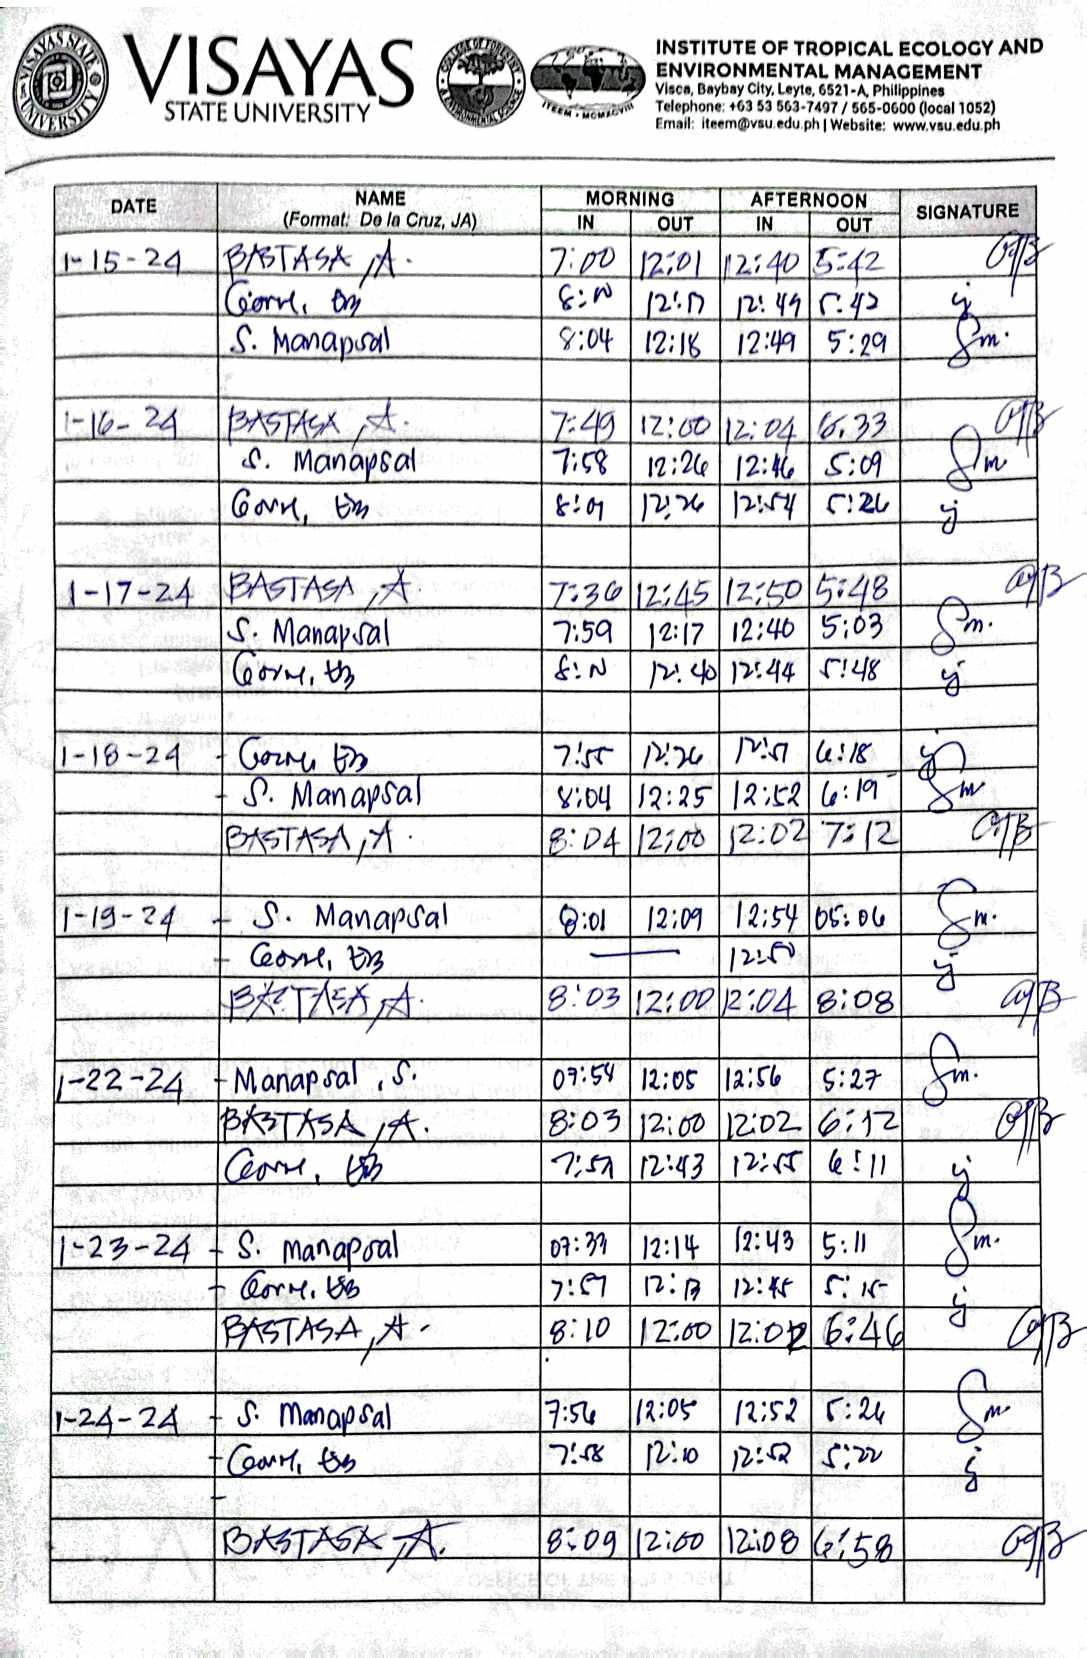 VISAYAS
STATE UNIVERSITY
INSTITUTE OF TROPICAL ECOLOGY AND
ENVIRONMENTAL MANAGEMENT
Visca, Baybay City, Leyte, 6521-A, Philippines
Telephone: +63 53 563-7497 / 565-0600 (local 1052)
Email: iteem@vsu.edu.ph | Website: www.vsu.edu.ph
DATE NAME (Format: De la Cruz, JA) MORNING AFTERNOON SIGNATURE
IN OUT IN OUT
1-15-24 BASTASA, A. 7:00 12:01 12:40 5:42
12:17 12:49 5:42
S. Manapsal 8:04 12:18 12:49 5:29 Sm.
1-16-24 BASTASA, A. 7:49 12:00 12:04 6:33
S. Manapsal 7:58 12:26 12:46 5:09 Sm
8:01 12:26 12:54 5:26
1-17-24 BASTASA, A. 7:36 12:45 12:50 5:48
S. Manapsal 7:59 12:17 12:40 5:03 Sm.
12:40 12:44 5:48
1-18-24 - 7:55 12:26 12:51 6:18
- S. Manapsal 8:04 12:25 12:52 6:19 Sm
BASTASA, A. 8:04 12:00 12:02 7:12
1-19-24 - S. Manapsal 8:01 12:09 12:54 05:06 Sm.
- — 12:50
BASTASA, A. 8:03 12:00 12:04 8:08
1-22-24 - Manapsal, S. 07:54 12:05 12:56 5:27 Sm.
BASTASA, A. 8:03 12:00 12:02 6:12
12:43 12:55 6:11
1-23-24 - S. Manapsal 07:39 12:14 12:43 5:11 Sm.
- 7:57 12:13 12:45 5:15
BASTASA, A. 8:10 12:00 12:02 6:46
1-24-24 - S. Manapsal 7:56 12:05 12:52 5:26 Sm
- 7:58 12:10 12:52 5:22
-
BASTASA, A. 8:09 12:00 12:08 6:58